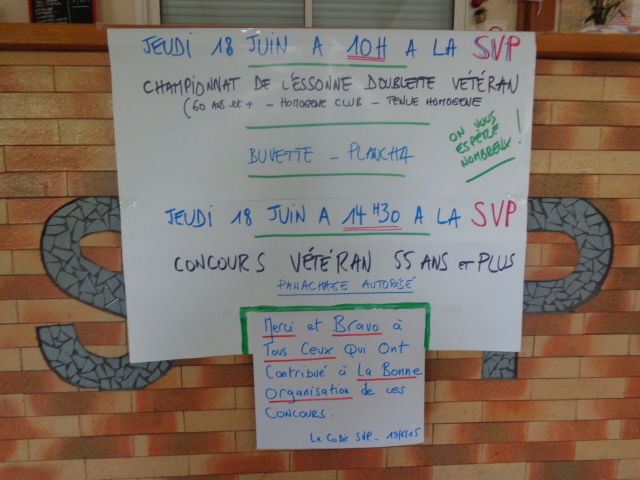 JEUDI 18 JUIN A 10H A LA SVP
CHAMPIONNAT DE L'ESSONNE DOUBLETTE VÉTÉRAN
(60 ANS et + - HOMOGENE CLUB - TENUE HOMOGENE
ON VOUS
ESPÈRE
NOMBREUX !
BUVETTE - PLANCHA
JEUDI 18 JUIN A 14H30 A LA SVP
CONCOURS VÉTÉRAN 55 ANS et PLUS
PANACHAGE AUTORISÉ
Merci et Bravo à
Tous Ceux Qui Ont
Contribué à La Bonne
Organisation de ces
Concours.
Le CoDir SVP - 19/6/15
S P